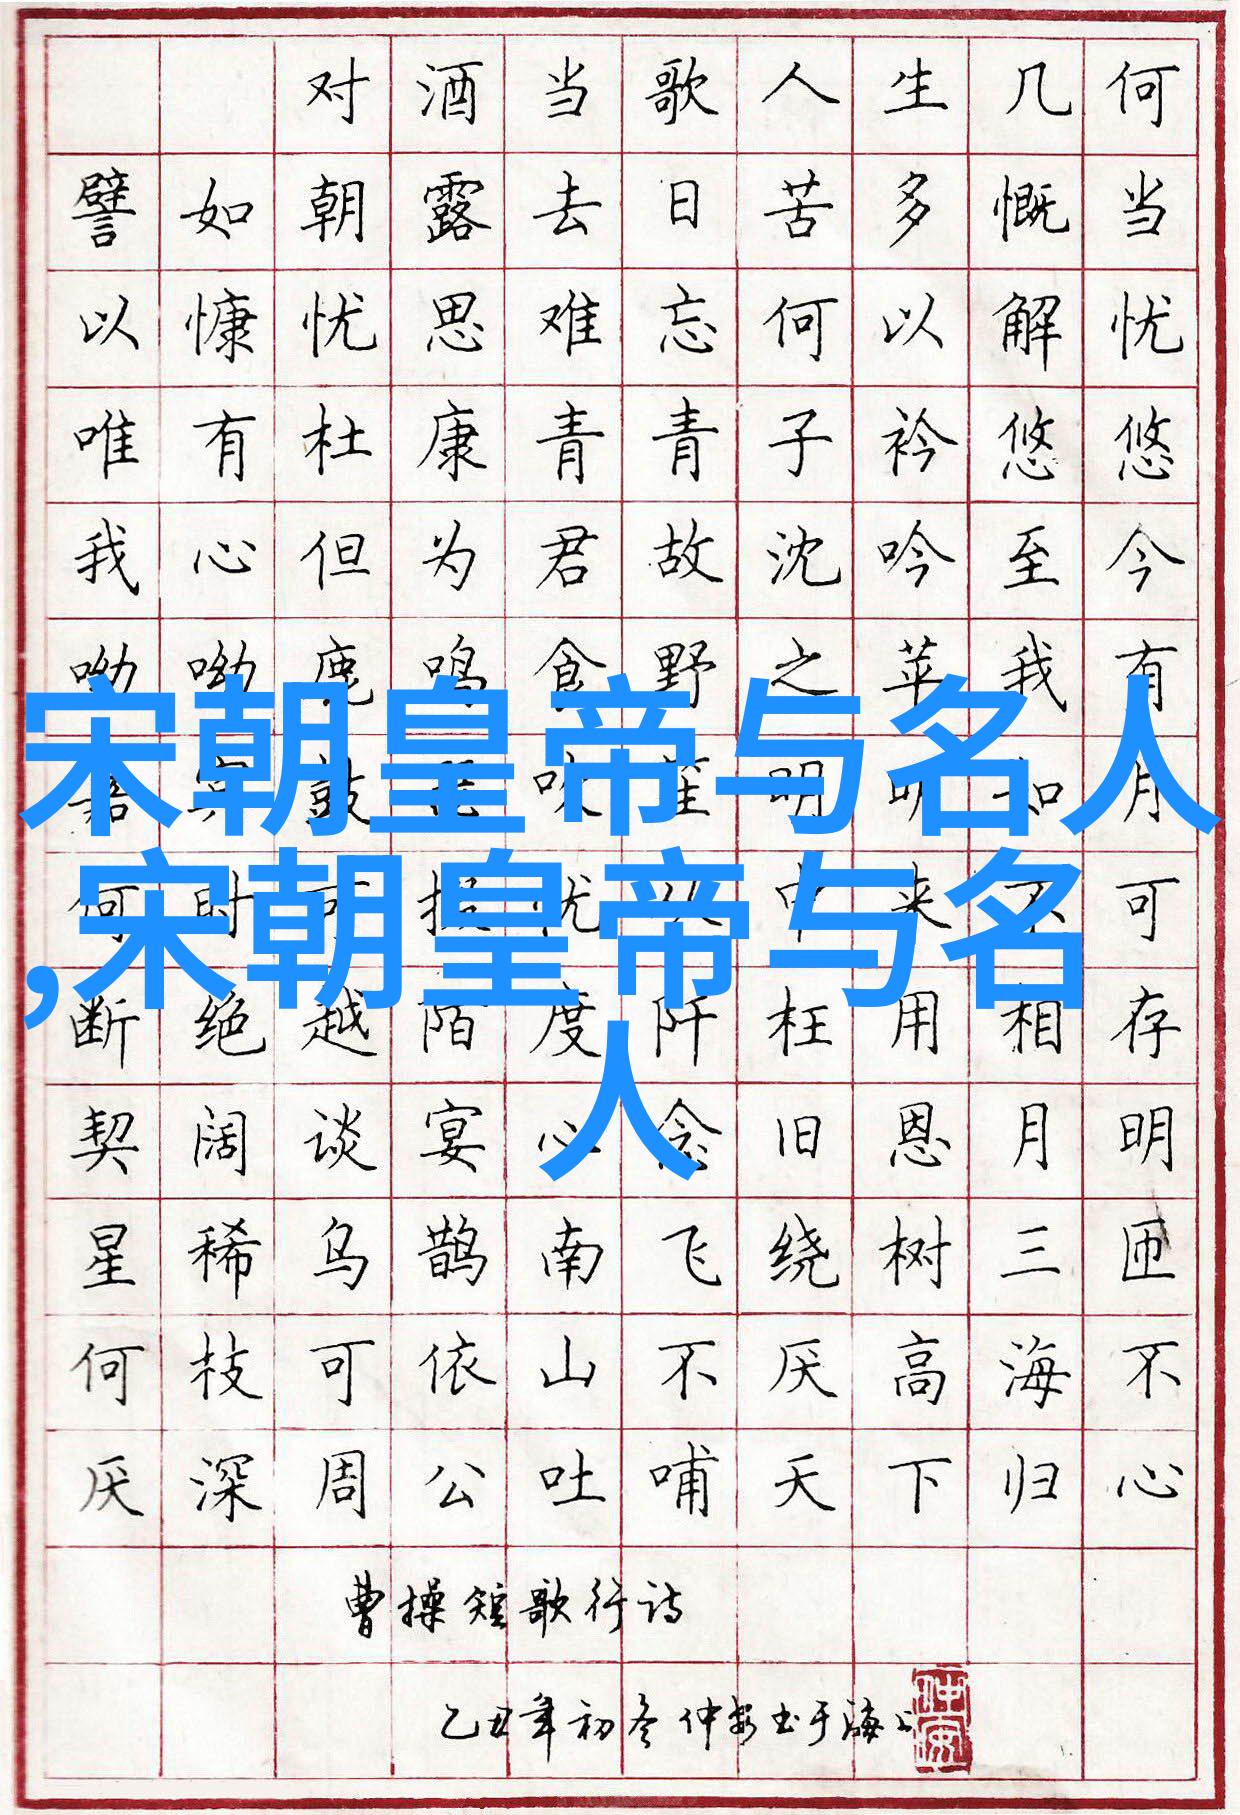 对酒当歌人生几何
譬如朝露去日苦多慨当
以慷忧思难忘何以解忧
唯有杜康青青子衿悠悠
我心但为君故沈吟至今
呦呦鹿鸣食野之苹我有
宋朝皇帝与名人
吹笙明明如月
,宋朝皇帝与名
何时可掇忧从中来不可
断绝越陌度阡枉用相存
人
契阔谈宴心念旧恩月明
星稀乌鹊南飞绕树三匝
何枝可依山不厌高海不
厌深周公吐哺天下归心
曹操短歌行诗
乙丑年初冬仲安书于海上
仲安